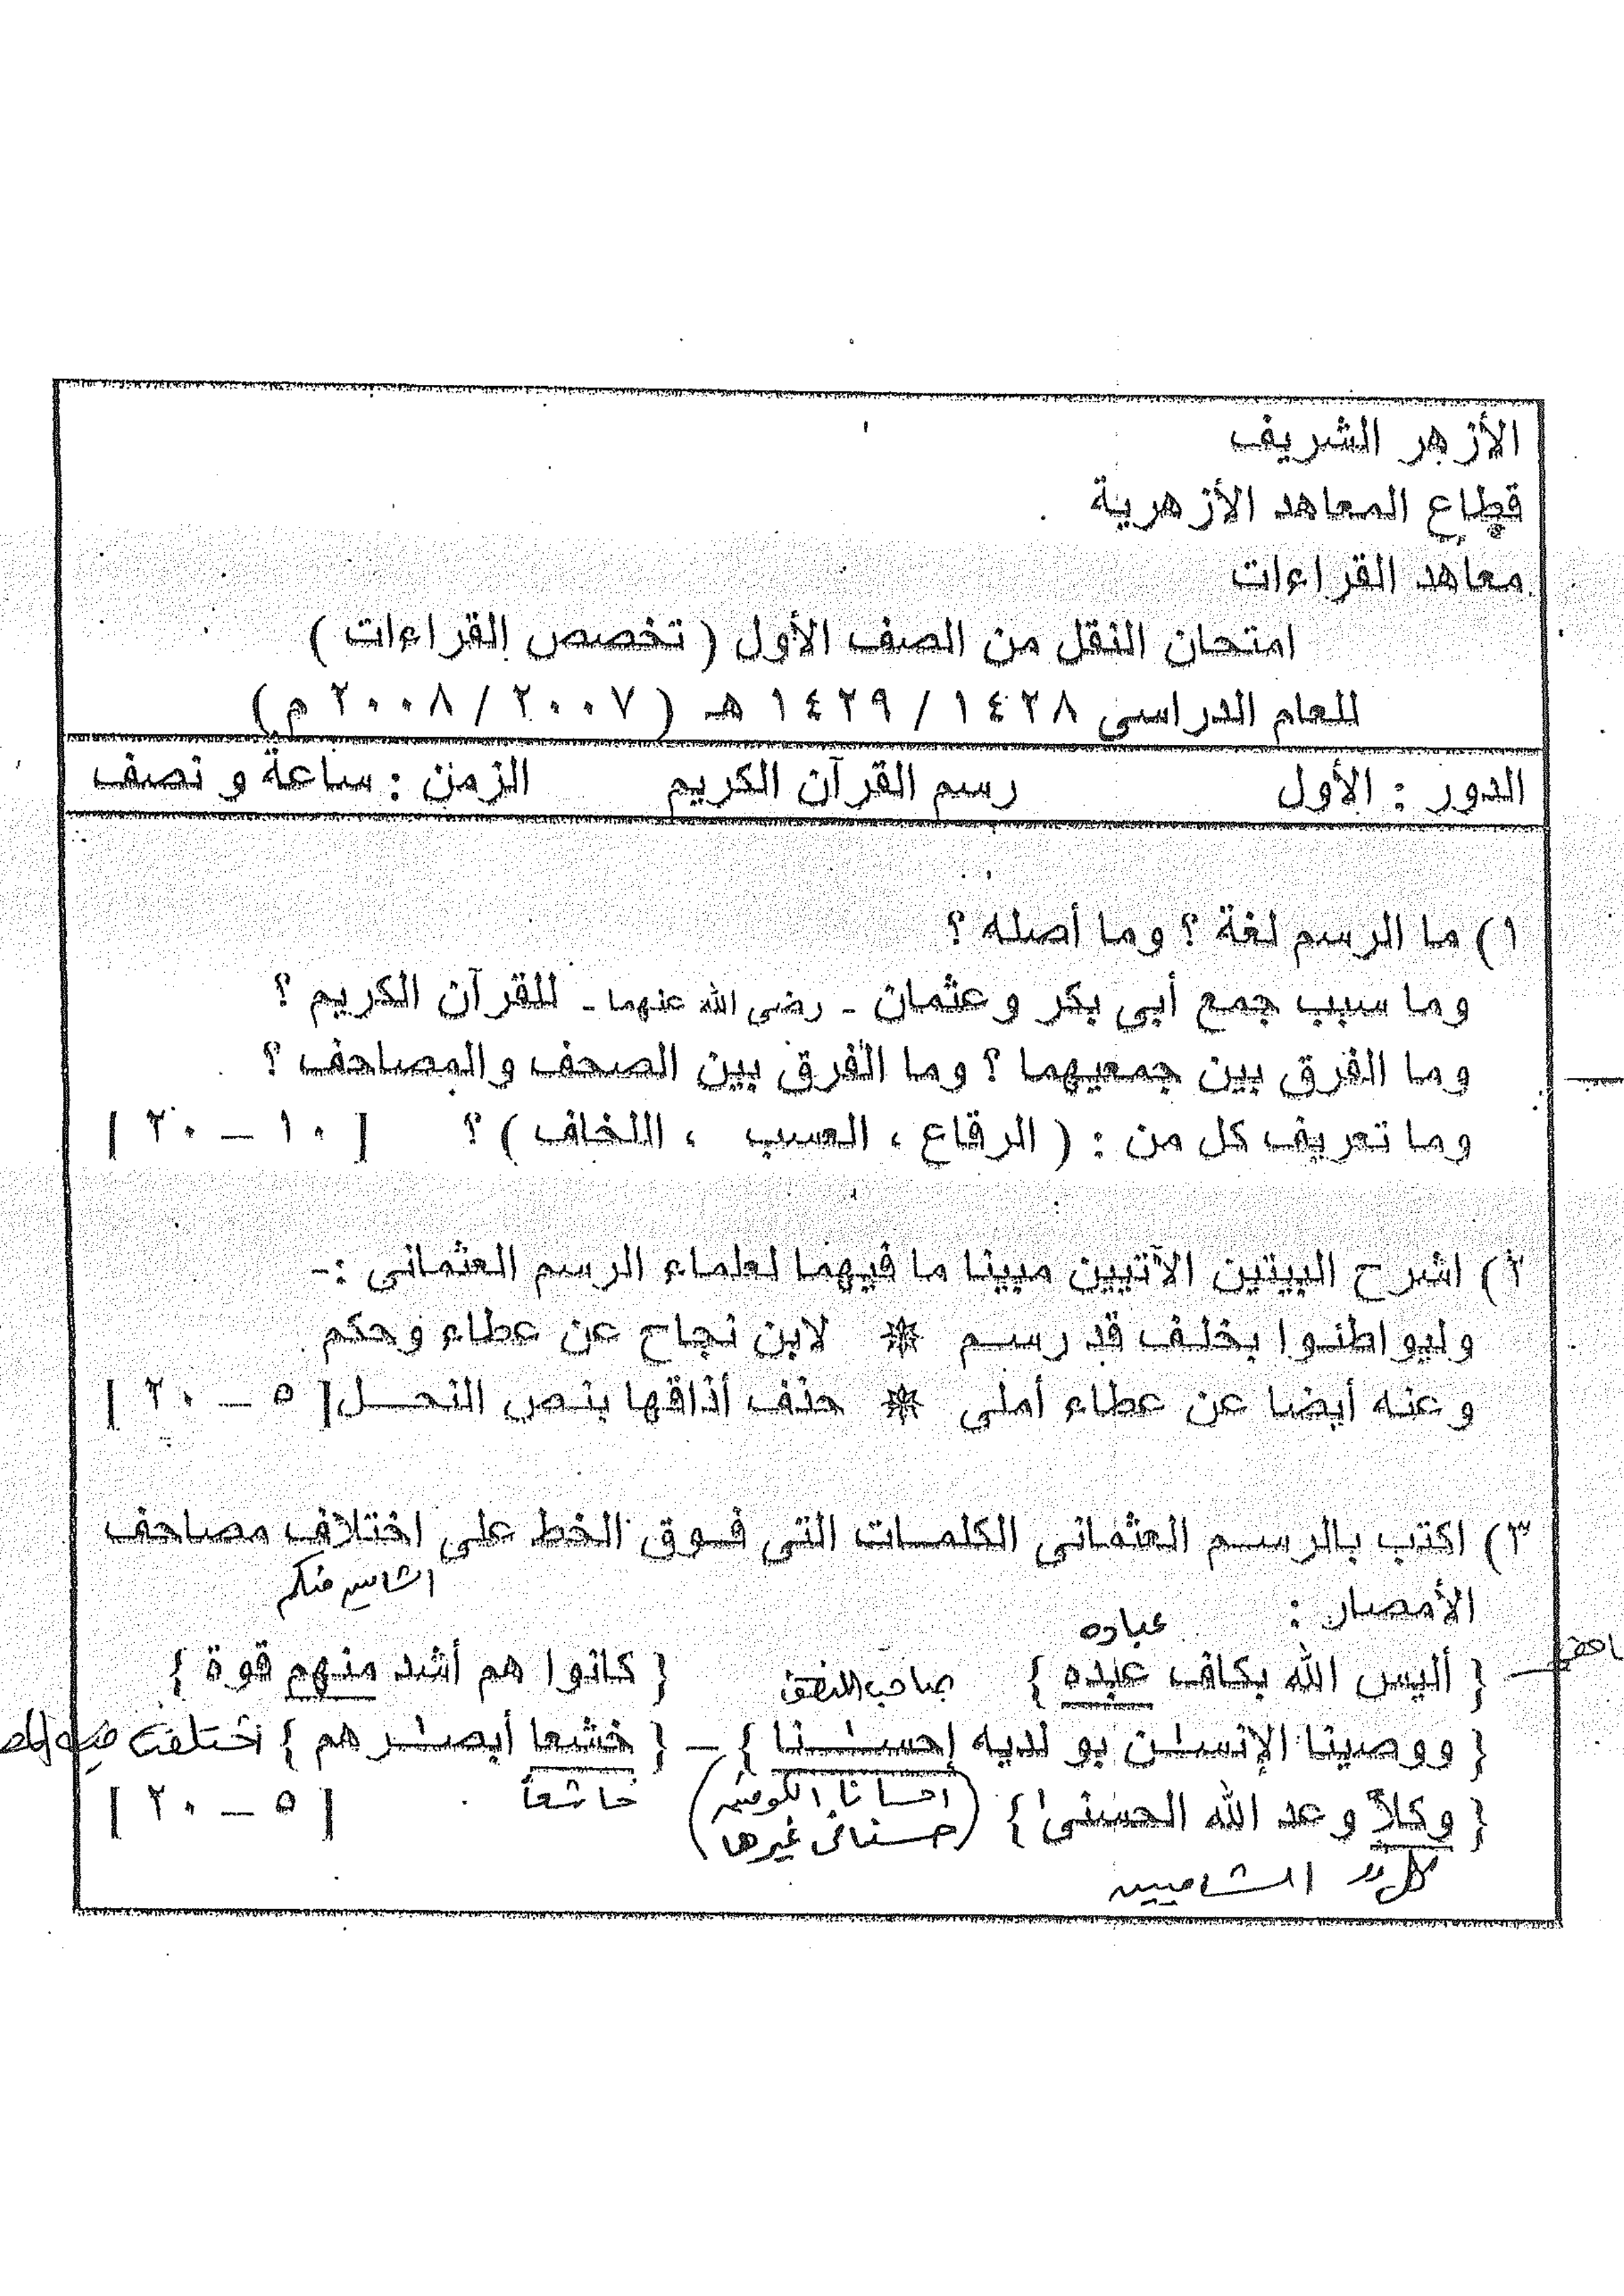 الأزهر الشريف
قطاع المعاهد الأزهرية
معاهد القراءات
امتحان النقل من الصف الأول ( تخصص القراءات )
للعام الدراسى ١٤٢٨ / ١٤٢٩ هـ ( ٢٠٠٧ / ٢٠٠٨ م )
الدور : الأول رسم القرآن الكريم الزمن : ساعة و نصف
١) ما الرسم لغة ؟ وما أصله ؟
وما سبب جمع أبى بكر وعثمان - رضى الله عنهما - للقرآن الكريم ؟
وما الفرق بين جمعيهما ؟ وما الفرق بين الصحف والمصاحف ؟
وما تعريف كل من : ( الرقاع ، العسب ، اللخاف ) ؟ [ ١٠ – ٢٠ ]
٢) اشرح البيتين الآتيين مبينا ما فيهما لعلماء الرسم العثمانى :-
وليواطئوا بخلف قد رسم * لابن نجاح عن عطاء وحكم
وعنه أيضا عن عطاء أملى * حذف أذاقها بنص النحل [ ٥ – ٢٠ ]
٣) اكتب بالرسم العثمانى الكلمات التى فوق الخط على اختلاف مصاحف
الشامى منكم
الأمصار :
عباده
{ أليس الله بكاف عبده } { كانوا هم أشد منهم قوة }
{ ووصينا الإنسٰن بولديه إحسٰنا } – { خشعا أبصٰرهم } اختلفت
{ وكلاً وعد الله الحسنىٰ } ( احسانا الكوفيين خاشعاً [ ٥ – ٢٠ ]
حسنا فى غيرها )
كل الشاميين